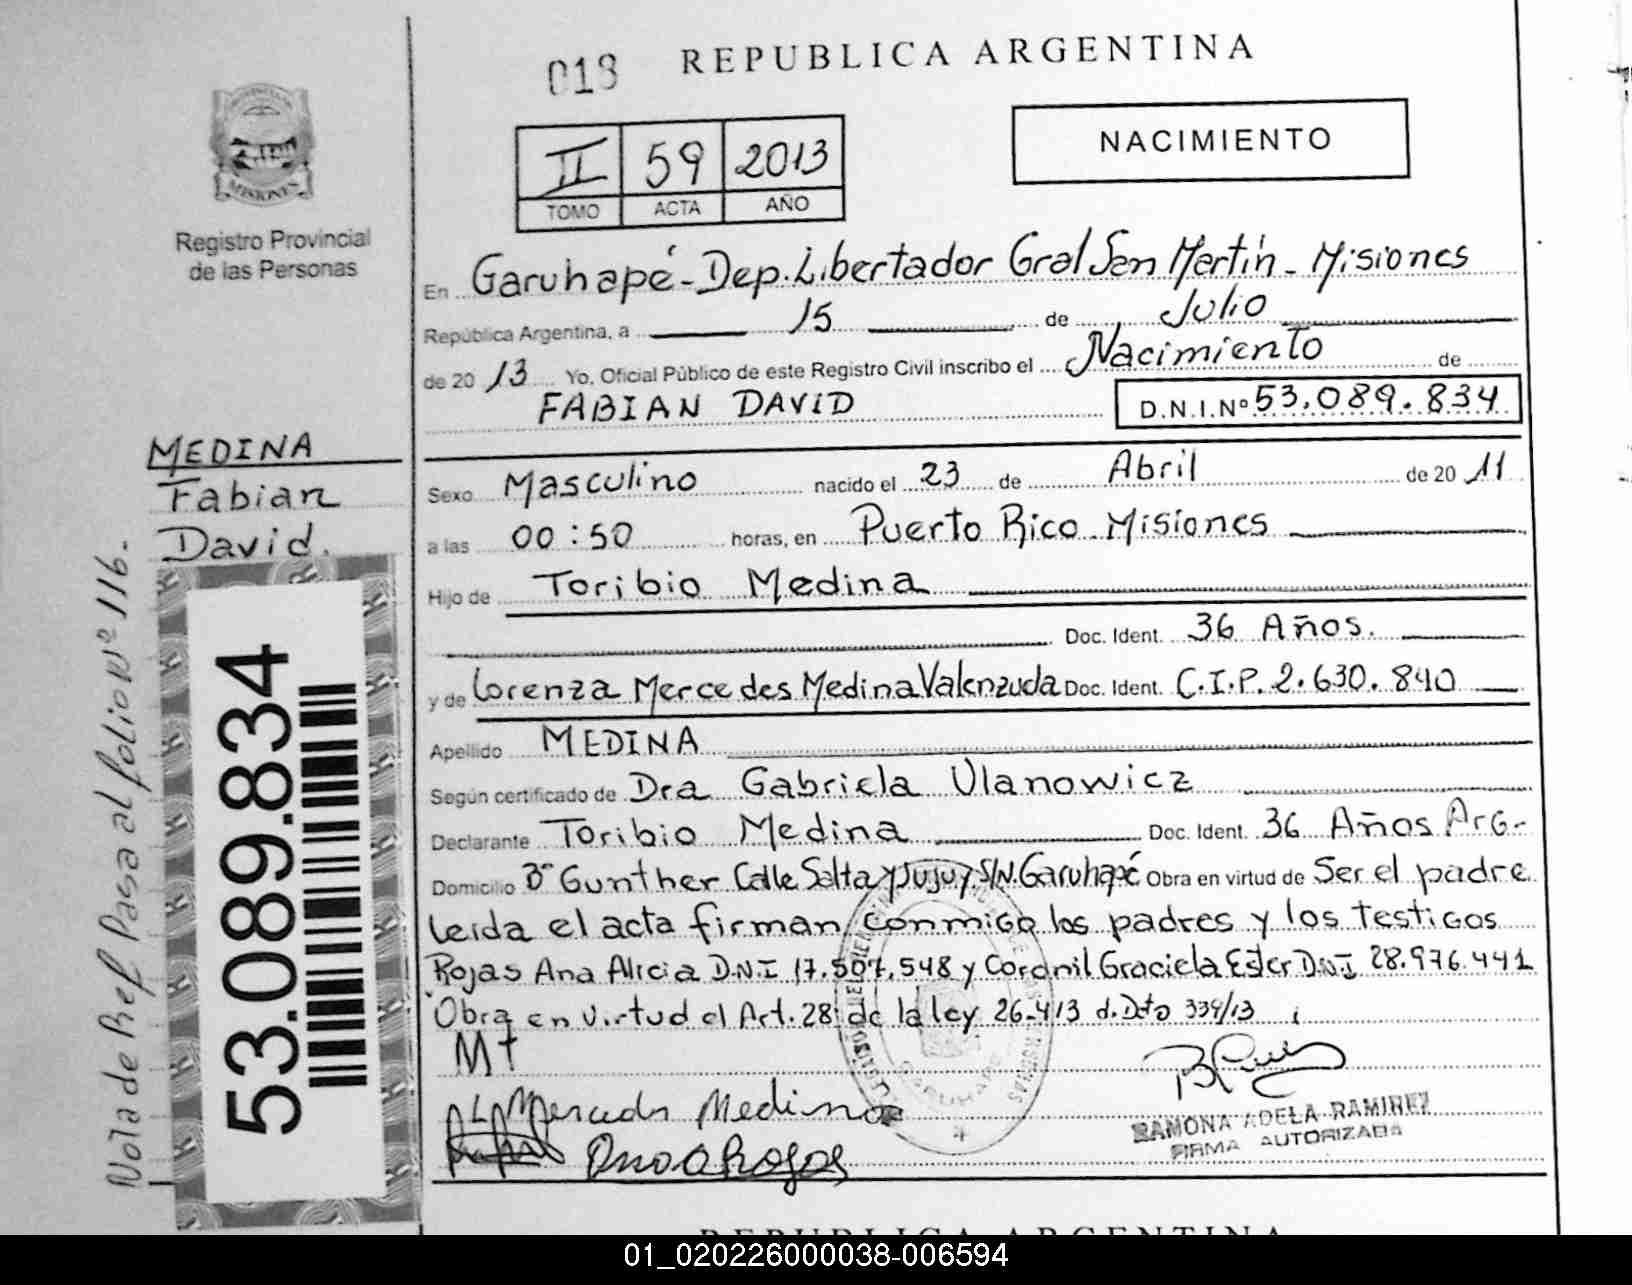 013
REPUBLICA ARGENTINA
II 59 2013
TOMO ACTA AÑO
NACIMIENTO
MISIONES
Registro Provincial
de las Personas
En Garuhapé - Dep. Libertador Gral San Martín - Misiones
República Argentina, a 15 de Julio
de 20 13 Yo, Oficial Público de este Registro Civil inscribo el Nacimiento de
FABIAN DAVID D.N.I.Nº 53.089.834
MEDINA
Fabian
David.
Sexo Masculino nacido el 23 de Abril de 20 11
a las 00:50 horas, en Puerto Rico - Misiones
Hijo de Toribio Medina
Doc. Ident. 36 Años.
y de Lorenza Mercedes Medina Valenzuela Doc. Ident. C.I.P. 2.630.840
Apellido MEDINA
Según certificado de Dra Gabriela Ulanowicz
Declarante Toribio Medina Doc. Ident. 36 Años Arg-
Domicilio Bº Gunther Calle Salta y Jujuy S/N. Garuhapé Obra en virtud de Ser el padre
leida el acta firman conmigo los padres y los testigos
Rojas Ana Alicia D.N.I 17.507.548 y Coronil Graciela Ester D.N.I 28.976.441
Obra en virtud el Art. 28 de la ley 26.413 d. Dto 339/13
MT
Mercedes Medina
RAMONA ADELA RAMIREZ
FIRMA AUTORIZADA
Nota de Ref Pasa al folio Nº 116.
53.089.834
REPUBLICA ARGENTINA
01_020226000038-006594